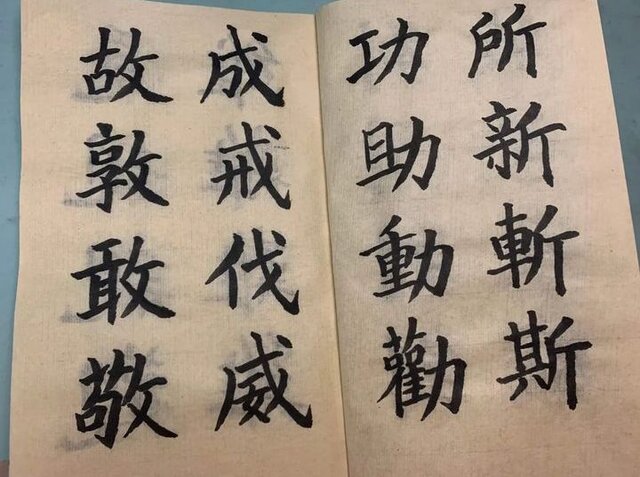 所新斬斯
功助動勸
成戒伐威
故敦敢敬